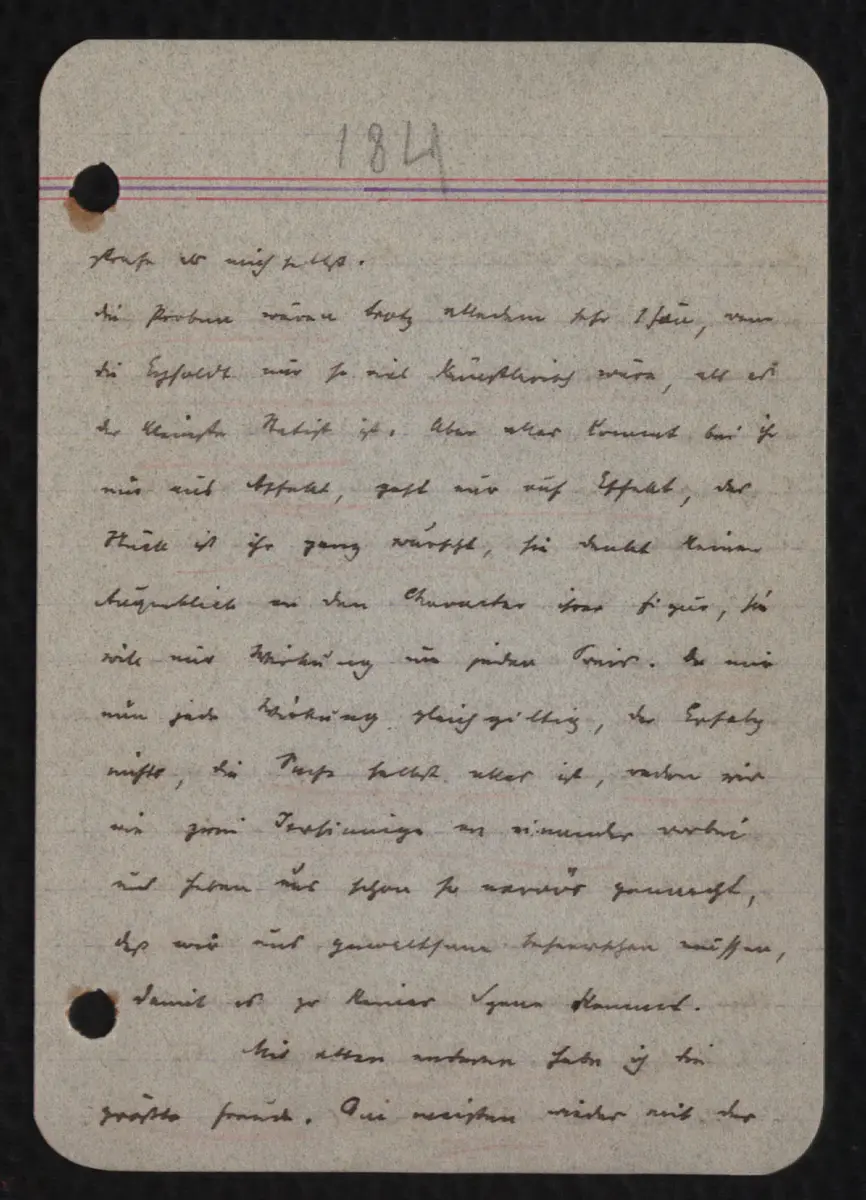 184
strafe als mich selbst.
die Proben wären trotz alledem sehr schön, wenn
die Eysoldt nur so viel künstlerisch wäre, als es
der kleinste Statist ist. Aber alles kommt bei ihr
nur aus Affekt, geht nur auf Effekt, das
Stück ist ihr ganz wurscht, sie denkt keinen
Augenblick an den Character ihrer Figur, sie
will nur Wirkung um jeden Preis. Da mir
nun jede Wirkung gleichgiltig, der Erfolg
nichts, die Sache selbst alles ist, reden wir
wie zwei Irrsinnige an einander vorbei
und haben uns schon so nervös gemacht,
daß wir uns gewaltsam beherrschen müssen,
damit es zu keiner Szene kommt.
Mit allen anderen habe ich die
größte Freude. Am meisten wieder mit der